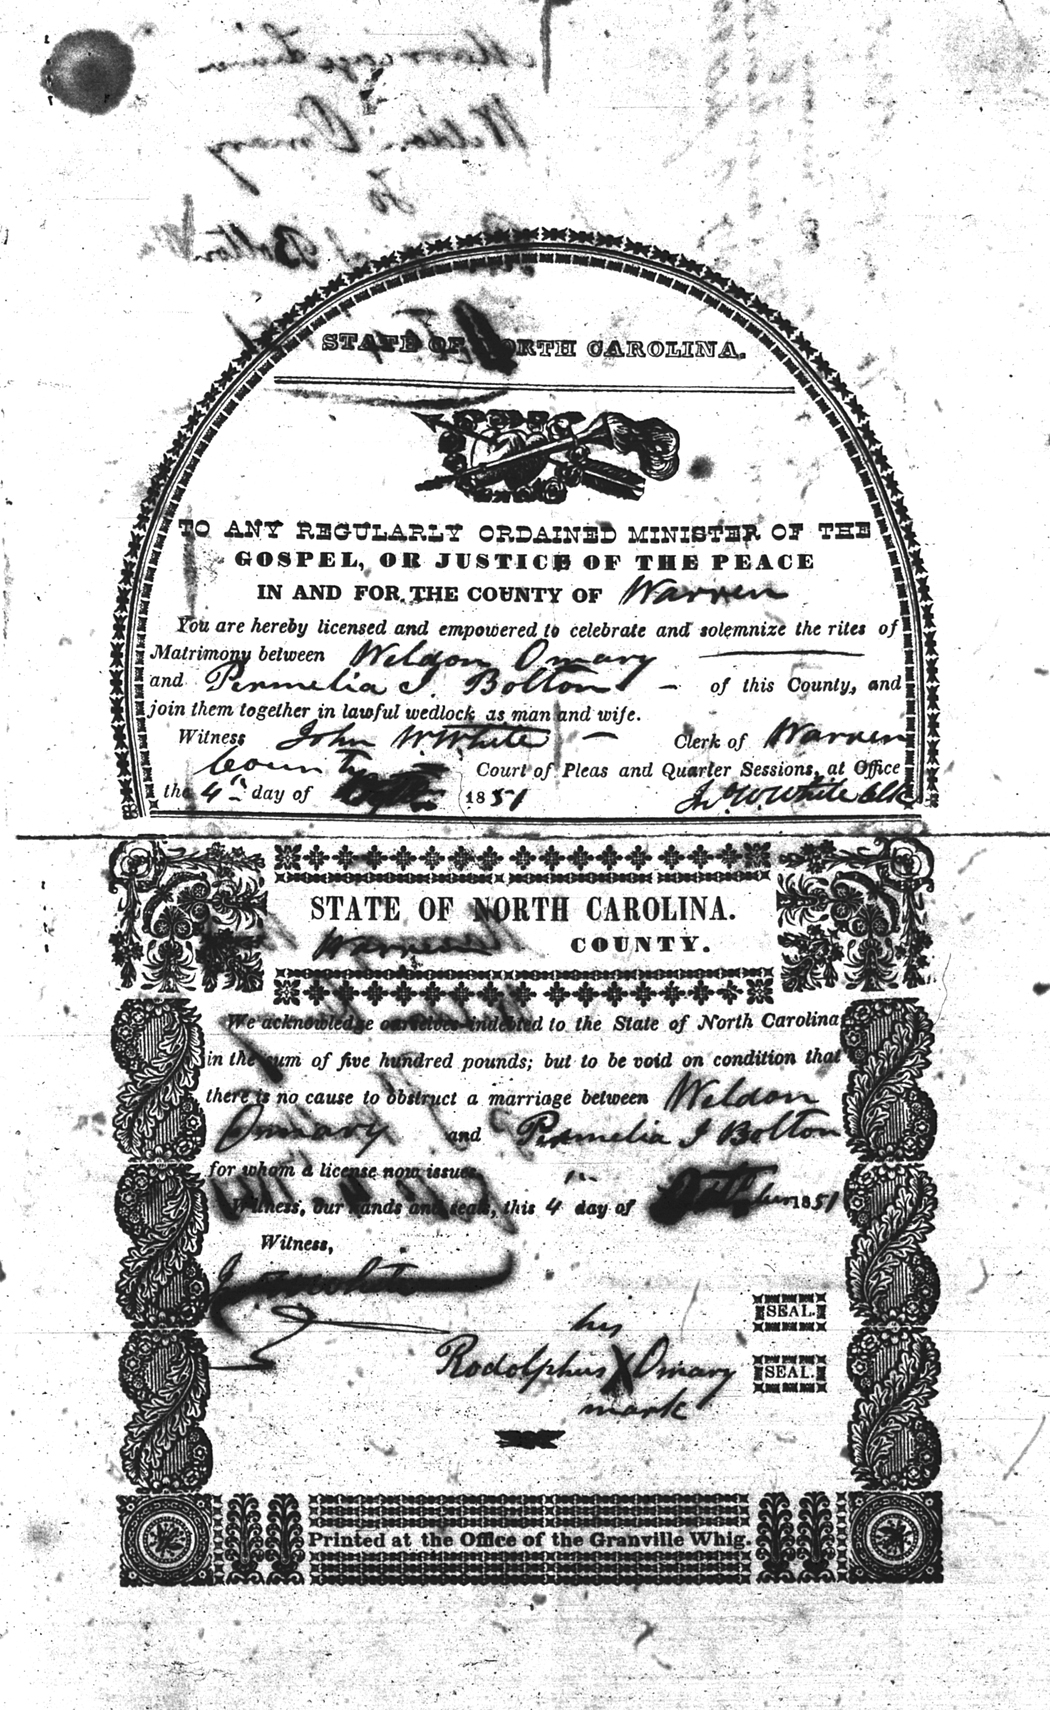 Weldon Omary
To
Bolton
STATE OF NORTH CAROLINA.
TO ANY REGULARLY ORDAINED MINISTER OF THE
GOSPEL, OR JUSTICE OF THE PEACE
IN AND FOR THE COUNTY OF Warren
You are hereby licensed and empowered to celebrate and solemnize the rites of
Matrimony between Weldon Omary
and Permelia I. Bolton of this County, and
join them together in lawful wedlock as man and wife.
Witness John W. White Clerk of Warren
County Court of Pleas and Quarter Sessions, at Office
the 4th day of 1851 Jno W White Clk
STATE OF NORTH CAROLINA.
Warren COUNTY.
We acknowledge ourselves indebted to the State of North Carolina
in the sum of five hundred pounds; but to be void on condition that
there is no cause to obstruct a marriage between Weldon
Omary and Permelia I Bolton
for whom a license now issues.
Witness, our hands and seals, this 4 day of 1851
Witness,
J W White
his
SEAL.
Rodolphus X Omary
SEAL.
mark
Printed at the Office of the Granville Whig.